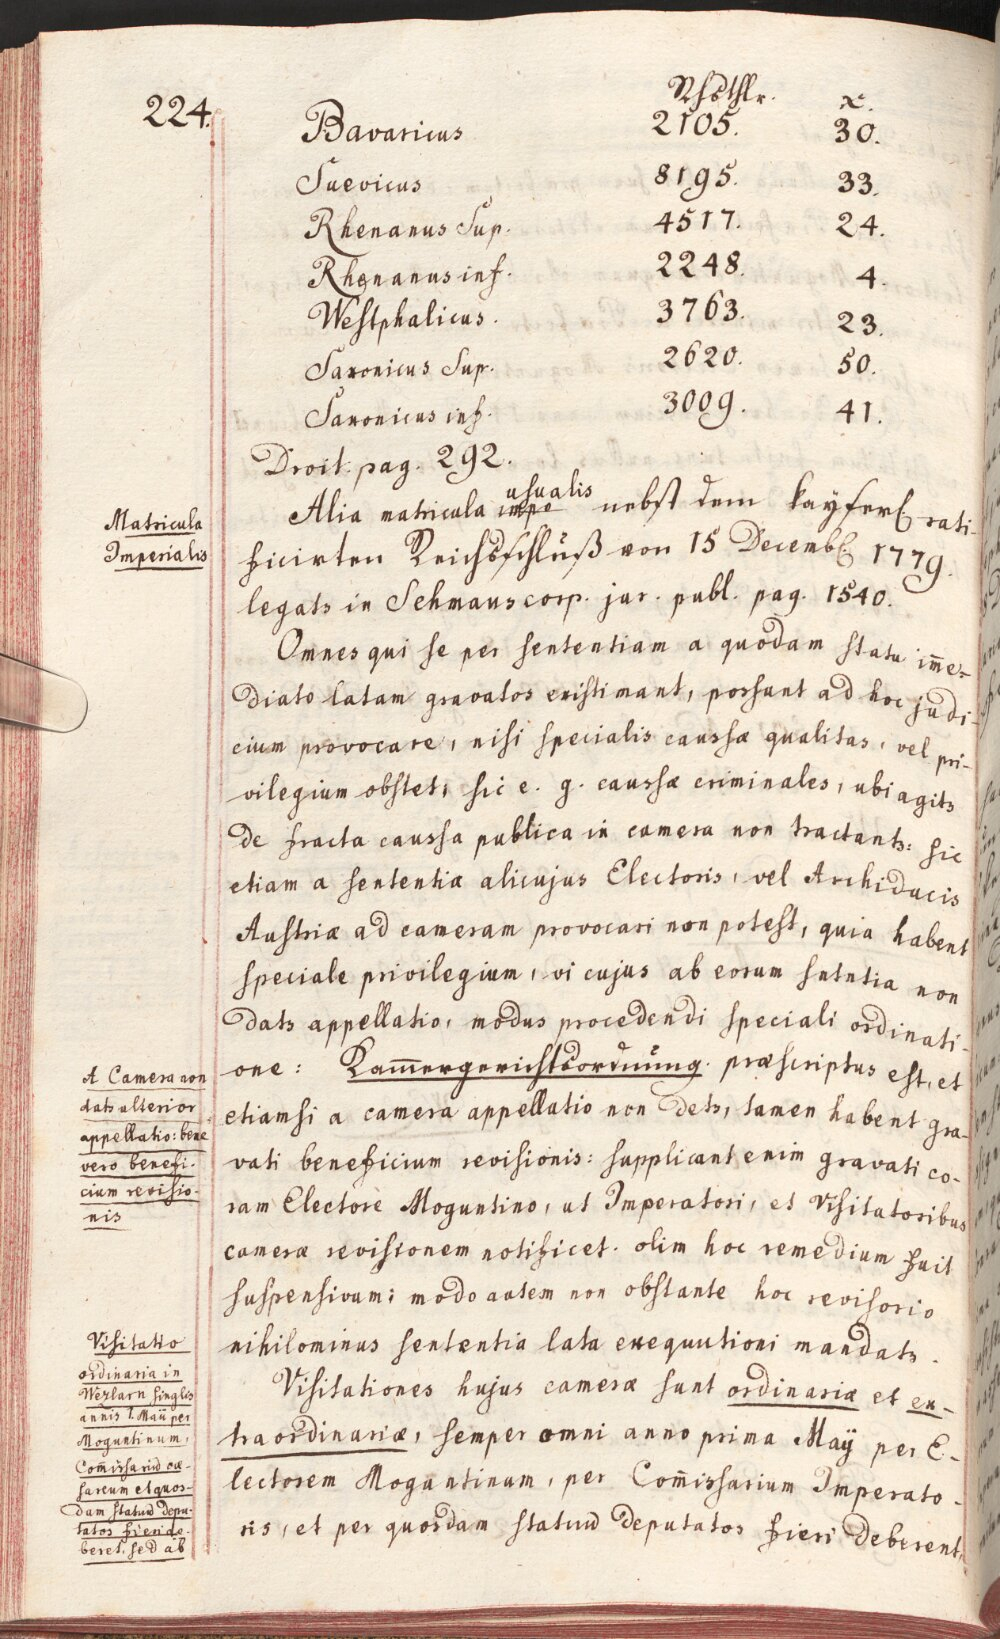 224.
Rhsthlr. x.
Bavaricus 2105. 30.
Suevicus 8195. 33.
Rhenanus Sup. 4517. 24.
Rhenanus inf. 2248. 4.
Westphalicus. 3763. 23.
Saxonicus Sup. 2620. 50.
Saxonicus inf. 3009. 41.
Droit. pag. 292.
Matricula
Imperialis
Alia matricula usualis nebst dem kayserl rati-
ficirten Reichsschluß von 15 Decemb 1779.
legats in Schmaus corp. jur. publ. pag. 1540.
Omnes qui se per sententiam a quodam statu im̄e-
diato latam gravatos existimant, possunt ad hoc judi-
cium provocare, nisi specialis caussæ qualitas, vel pri-
vilegium obstet, sic e. g. caussæ criminales, ubi agits
de fracta caussa publica in camera non tractants: sic
etiam a sententia alicujus Electoris, vel Archiducis
Austriæ ad cameram provocari non potest, quia habent
speciale privilegium, vi cujus ab eorum sntntia non
dats appellatio, modus procedendi speciali ordinati-
one: Kam̄ergerichtsordnung. præscriptus est, et
A Camera non
dats ulterior
appellatio: bene
vero benefi-
cium revisio-
nis
etiamsi a camera appellatio non dets, tamen habent gra-
vati beneficium revisionis: supplicant enim gravati co-
ram Electore Moguntino, ut Imperatori, et Visitatoribus
cameræ revisionem notificet. olim hoc remedium fuit
suspensivum; modo autem non obstante hoc revisorio
nihilominus sententia lata exequutioni mandats.
Visitatio
ordinaria in
Wezlarn singlis
annis 1. Maÿ per
Moguntinum,
Com̄issarium cæ-
sareum et quos-
dam statuū depu-
tatos fieri de-
beret. sed ab
Visitationes hujus cameræ sunt ordinariæ et ex-
traordinariæ, semper omni anno prima Maÿ per E-
lectorem Moguntinum, per Com̄issarium Imperato-
ris, et per quosdam statuū deputatos fieri deberent,